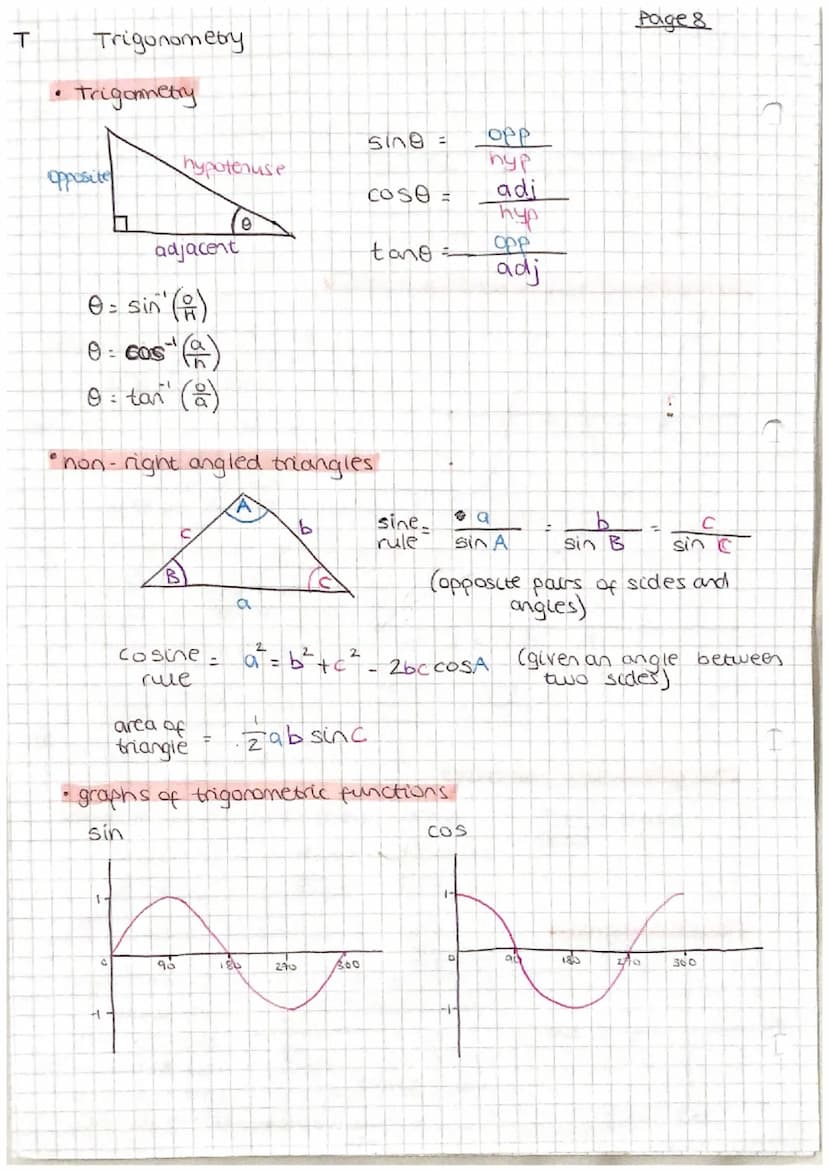 Page 8
T Trigonometry
• Trigonmetry
opposite
hypotenuse
θ
adjacent
sinθ = opp/hyp
cosθ = adj/hyp
tanθ = opp/adj
θ = sin⁻¹ (o/h)
θ = cos⁻¹ (a/h)
θ = tan⁻¹ (o/a)
• non-right angled triangles
A
c
b
B
C
a
sine rule = a/sin A = b/sin B = c/sin C
(opposite pairs of sides and
angles)
cosine rule = a² = b² + c² - 2bc cosA (given an angle between
two sides)
area of triangle = 1/2 ab sinC
• graphs of trigonometric functions
sin
1
0
90
180
270
360
-1
cos
1
0
90
180
270
360
-1